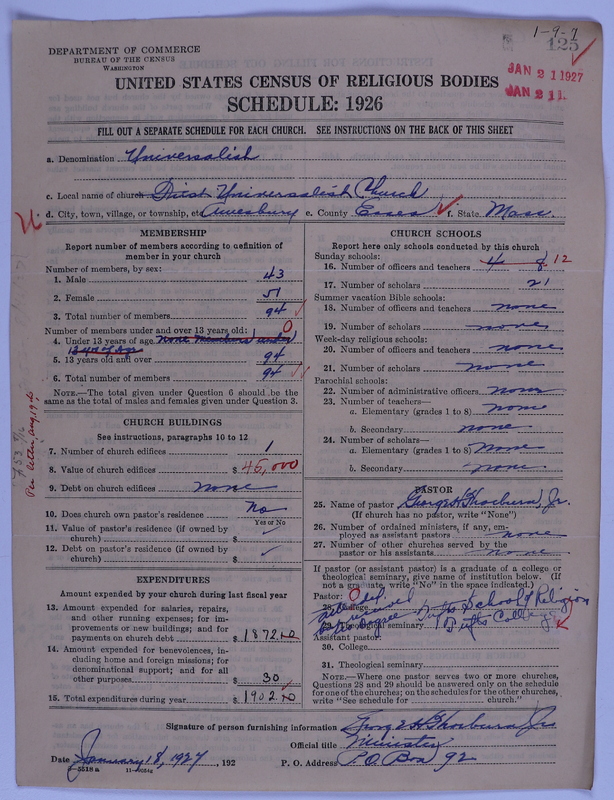 1-9-7
125
DEPARTMENT OF COMMERCE
BUREAU OF THE CENSUS
WASHINGTON
JAN 21 1927
JAN 21
UNITED STATES CENSUS OF RELIGIOUS BODIES
SCHEDULE: 1926
FILL OUT A SEPARATE SCHEDULE FOR EACH CHURCH. SEE INSTRUCTIONS ON THE BACK OF THIS SHEET
a. Denomination Universalist
c. Local name of church First Universalist Church
d. City, town, village, or township, etc. Amesbury e. County Essex f. State Mass.
MEMBERSHIP
Report number of members according to definition of
member in your church
Number of members, by sex:
1. Male 43
2. Female 51
3. Total number of members 94
Number of members under and over 13 years old: 0
4. Under 13 years of age none members under
13 yrs of age
5. 13 years old and over 94
6. Total number of members 94
NOTE.—The total given under Question 6 should be the
same as the total of males and females given under Question 3.
CHURCH BUILDINGS
See instructions, paragraphs 10 to 12
7. Number of church edifices 1
8. Value of church edifices $ 45,000
Per letter, Aug. 19
9. Debt on church edifices none
10. Does church own pastor's residence no
Yes or No
11. Value of pastor's residence (if owned by
church) $
12. Debt on pastor's residence (if owned by
church) $
EXPENDITURES
Amount expended by your church during last fiscal year
13. Amount expended for salaries, repairs,
and other running expenses; for im-
provements or new buildings; and for
payments on church debt $ 1872.20
14. Amount expended for benevolences, in-
cluding home and foreign missions; for
denominational support; and for all
other purposes $ 30
15. Total expenditures during year $ 1902.20
CHURCH SCHOOLS
Report here only schools conducted by this church
Sunday schools:
16. Number of officers and teachers 4 8 12
17. Number of scholars 21
Summer vacation Bible schools:
18. Number of officers and teachers none
19. Number of scholars none
Week-day religious schools:
20. Number of officers and teachers none
21. Number of scholars none
Parochial schools:
22. Number of administrative officers none
23. Number of teachers—
a. Elementary (grades 1 to 8) none
b. Secondary none
24. Number of scholars—
a. Elementary (grades 1 to 8) none
b. Secondary none
PASTOR
25. Name of pastor George H. Thorburn, Jr.
(If church has no pastor, write "None")
26. Number of ordained ministers, if any, em-
ployed as assistant pastors none
27. Number of other churches served by the
pastor or his assistants none
If pastor (or assistant pastor) is a graduate of a college or
theological seminary, give name of institution below. (If
not a graduate, write "No" in the space indicated.)
Pastor:
28. College
29. Theological seminary Tufts School of Religion
Tufts College
Assistant pastor:
30. College
31. Theological seminary
NOTE.—Where one pastor serves two or more churches,
Questions 28 and 29 should be answered only on the schedule
for one of the churches; on the schedules for the other churches,
write "See schedule for church."
Signature of person furnishing information George H. Thorburn Jr.
Official title Minister
Date January 18, 1927, 192 P. O. Address P.O. Box 92